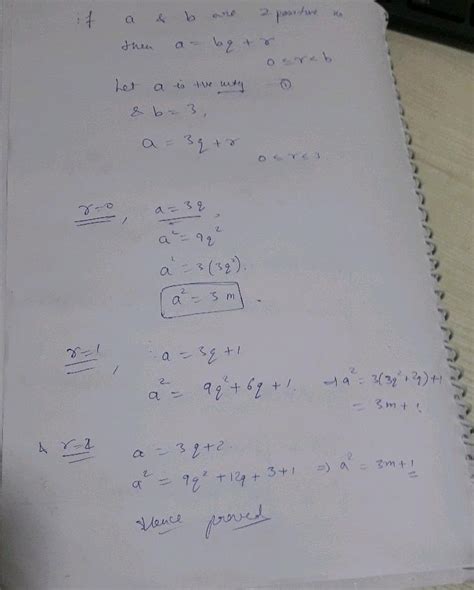 if a & b are 2 positive
then a = bq + r
0 ≤ r < b
Let a is +ve intg — ①
& b = 3,
a = 3q + r
0 ≤ r < 3
r=0, a = 3q,
a² = 9q²
a² = 3(3q²).
a² = 3m.
r=1, a = 3q + 1
a² = 9q² + 6q + 1. ⇒ a² = 3(3q²+2q)+1
= 3m+1.
& r=2 a = 3q+2
a² = 9q² + 12q + 3 + 1 ⇒ a² = 3m+1
Hence proved